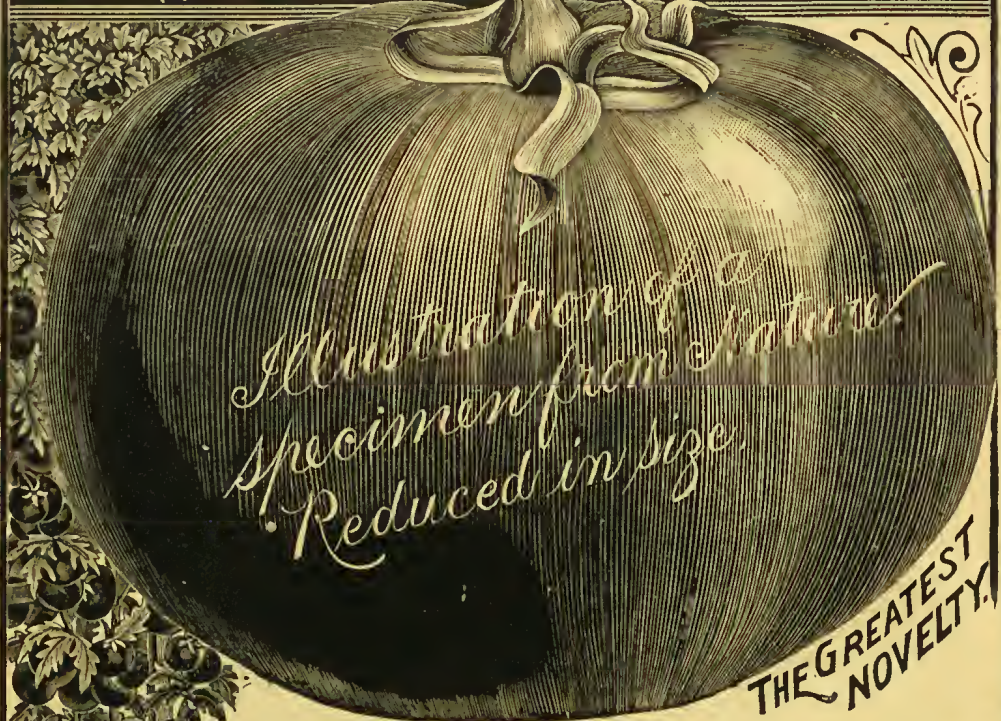 Illustration of a
specimen from Nature
Reduced in size.
THE GREATEST
NOVELTY.